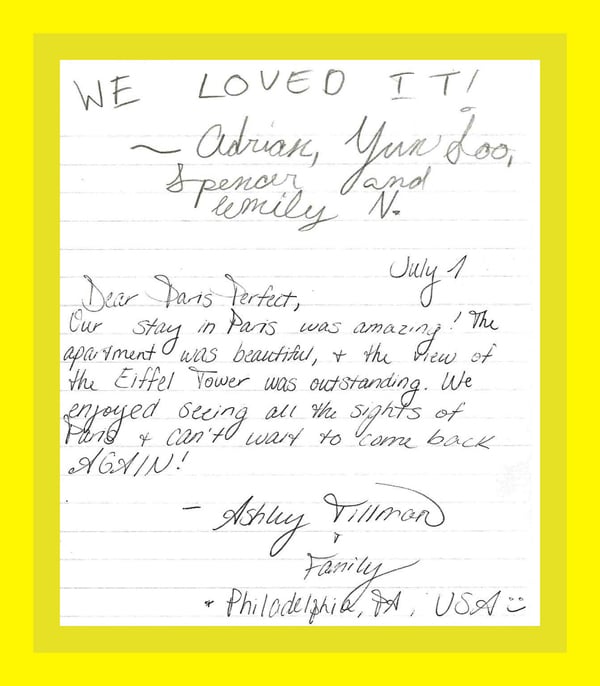 WE LOVED IT!
~ Adrian, Yun Soo,
Spencer and
Emily N.
July 1
Dear Paris Perfect,
Our stay in Paris was amazing! The
apartment was beautiful, + the view of
the Eiffel Tower was outstanding. We
enjoyed seeing all the sights of
Paris + can't wait to come back
AGAIN!
- Ashley Tillman
+
Family
* Philadelphia, PA, USA :)